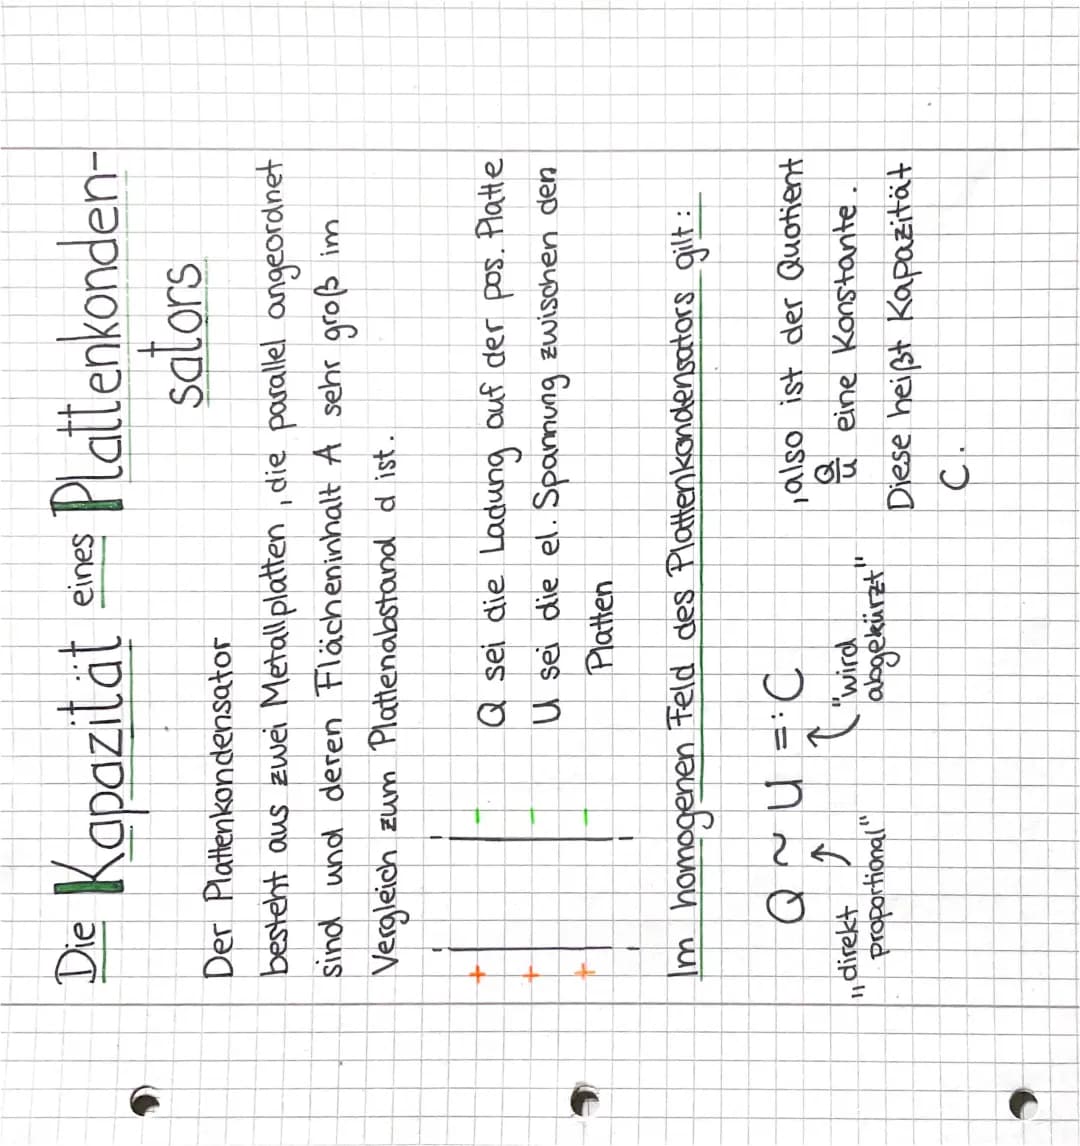 Die Kapazität eines Plattenkonden-
sators
Der Plattenkondensator
besteht aus zwei Metallplatten, die parallel angeordnet
sind und deren Flächeninhalt A sehr groß im
Vergleich zum Plattenabstand d ist.
+ -
+ -
+ -
Q sei die Ladung auf der pos. Platte
U sei die el. Spannung zwischen den
Platten
Im homogenen Feld des Plattenkondensators gilt:
Q ~ U =: C
"direkt
proportional"
"wird
abgekürzt"
, also ist der Quotient
Q/U eine Konstante.
Diese heißt Kapazität
C.